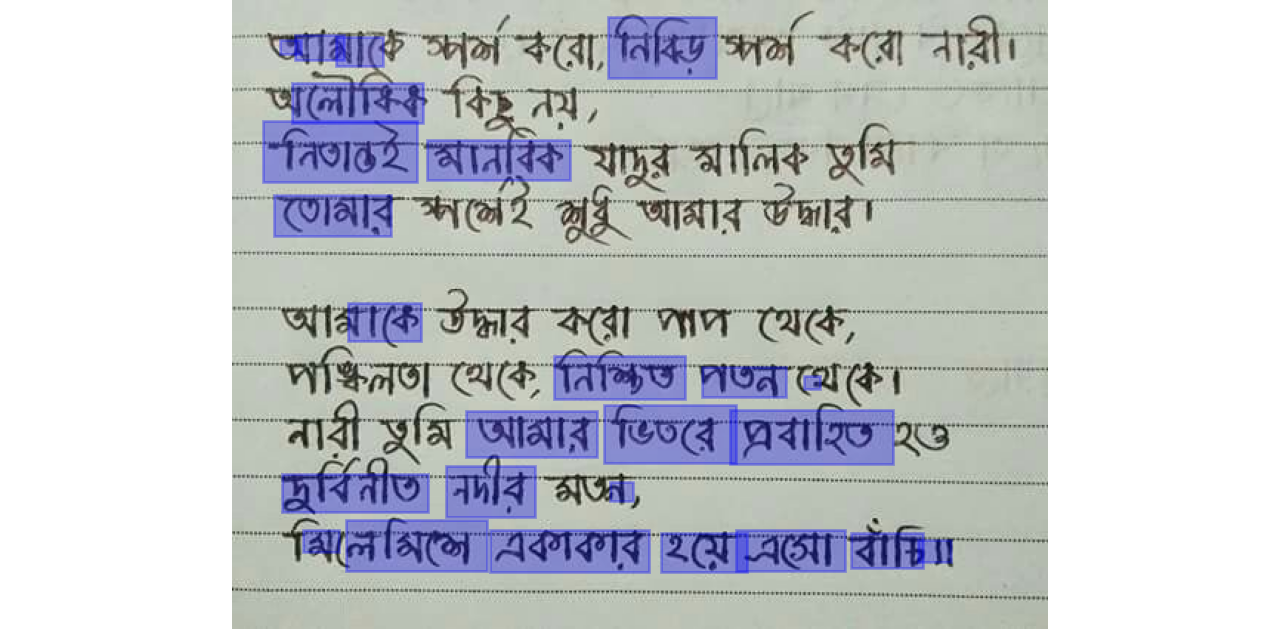 আমাকে স্পর্শ করো, নিবিড় স্পর্শ করো নারী।
অলৌকিক কিছু নয়,
নিতান্তই মানবিক যাদুর মালিক তুমি
তোমার স্পর্শেই শুধু আমার উদ্ধার।
আমাকে উদ্ধার করো পাপ থেকে,
পঙ্কিলতা থেকে, নিশ্চিত পতন থেকে।
নারী তুমি আমার ভিতরে প্রবাহিত হও
দুর্বিনীত নদীর মতন,
মিলেমিশে একাকার হয়ে এসো বাঁচি॥